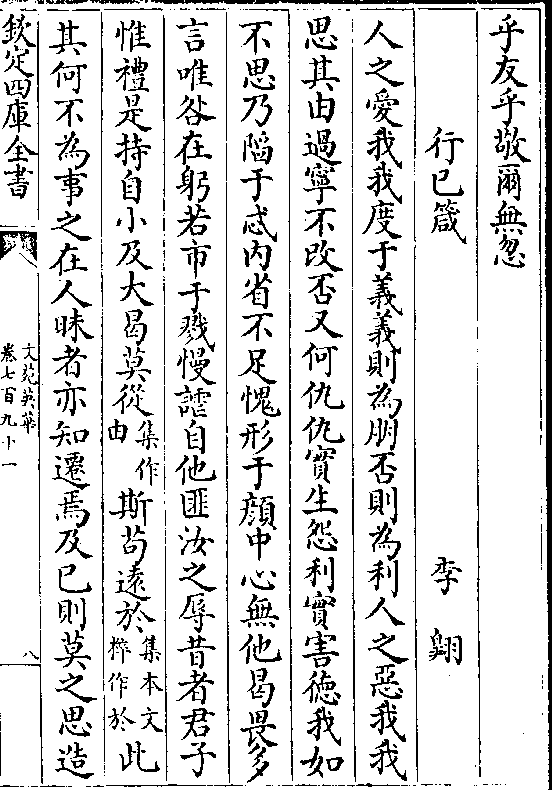 乎友乎敬爾無忽
行己箴　李翺
人之愛我我度于義義則為朋否則為利人之惡我我
思其由過寧不改否又何仇仇實生怨利實害德我如
不思乃陷于忒内省不足愧形于顔中心無他曷畏多
言唯咎在躬若市于戮慢謔自他匪汝之辱昔者君子
惟禮是持自小及大曷莫從集作由斯苟遠於集本文粹作於此
其何不為事之在人昧者亦知遷焉及己則莫之思造
欽定四庫全書
文苑英華
卷七百九十一
八